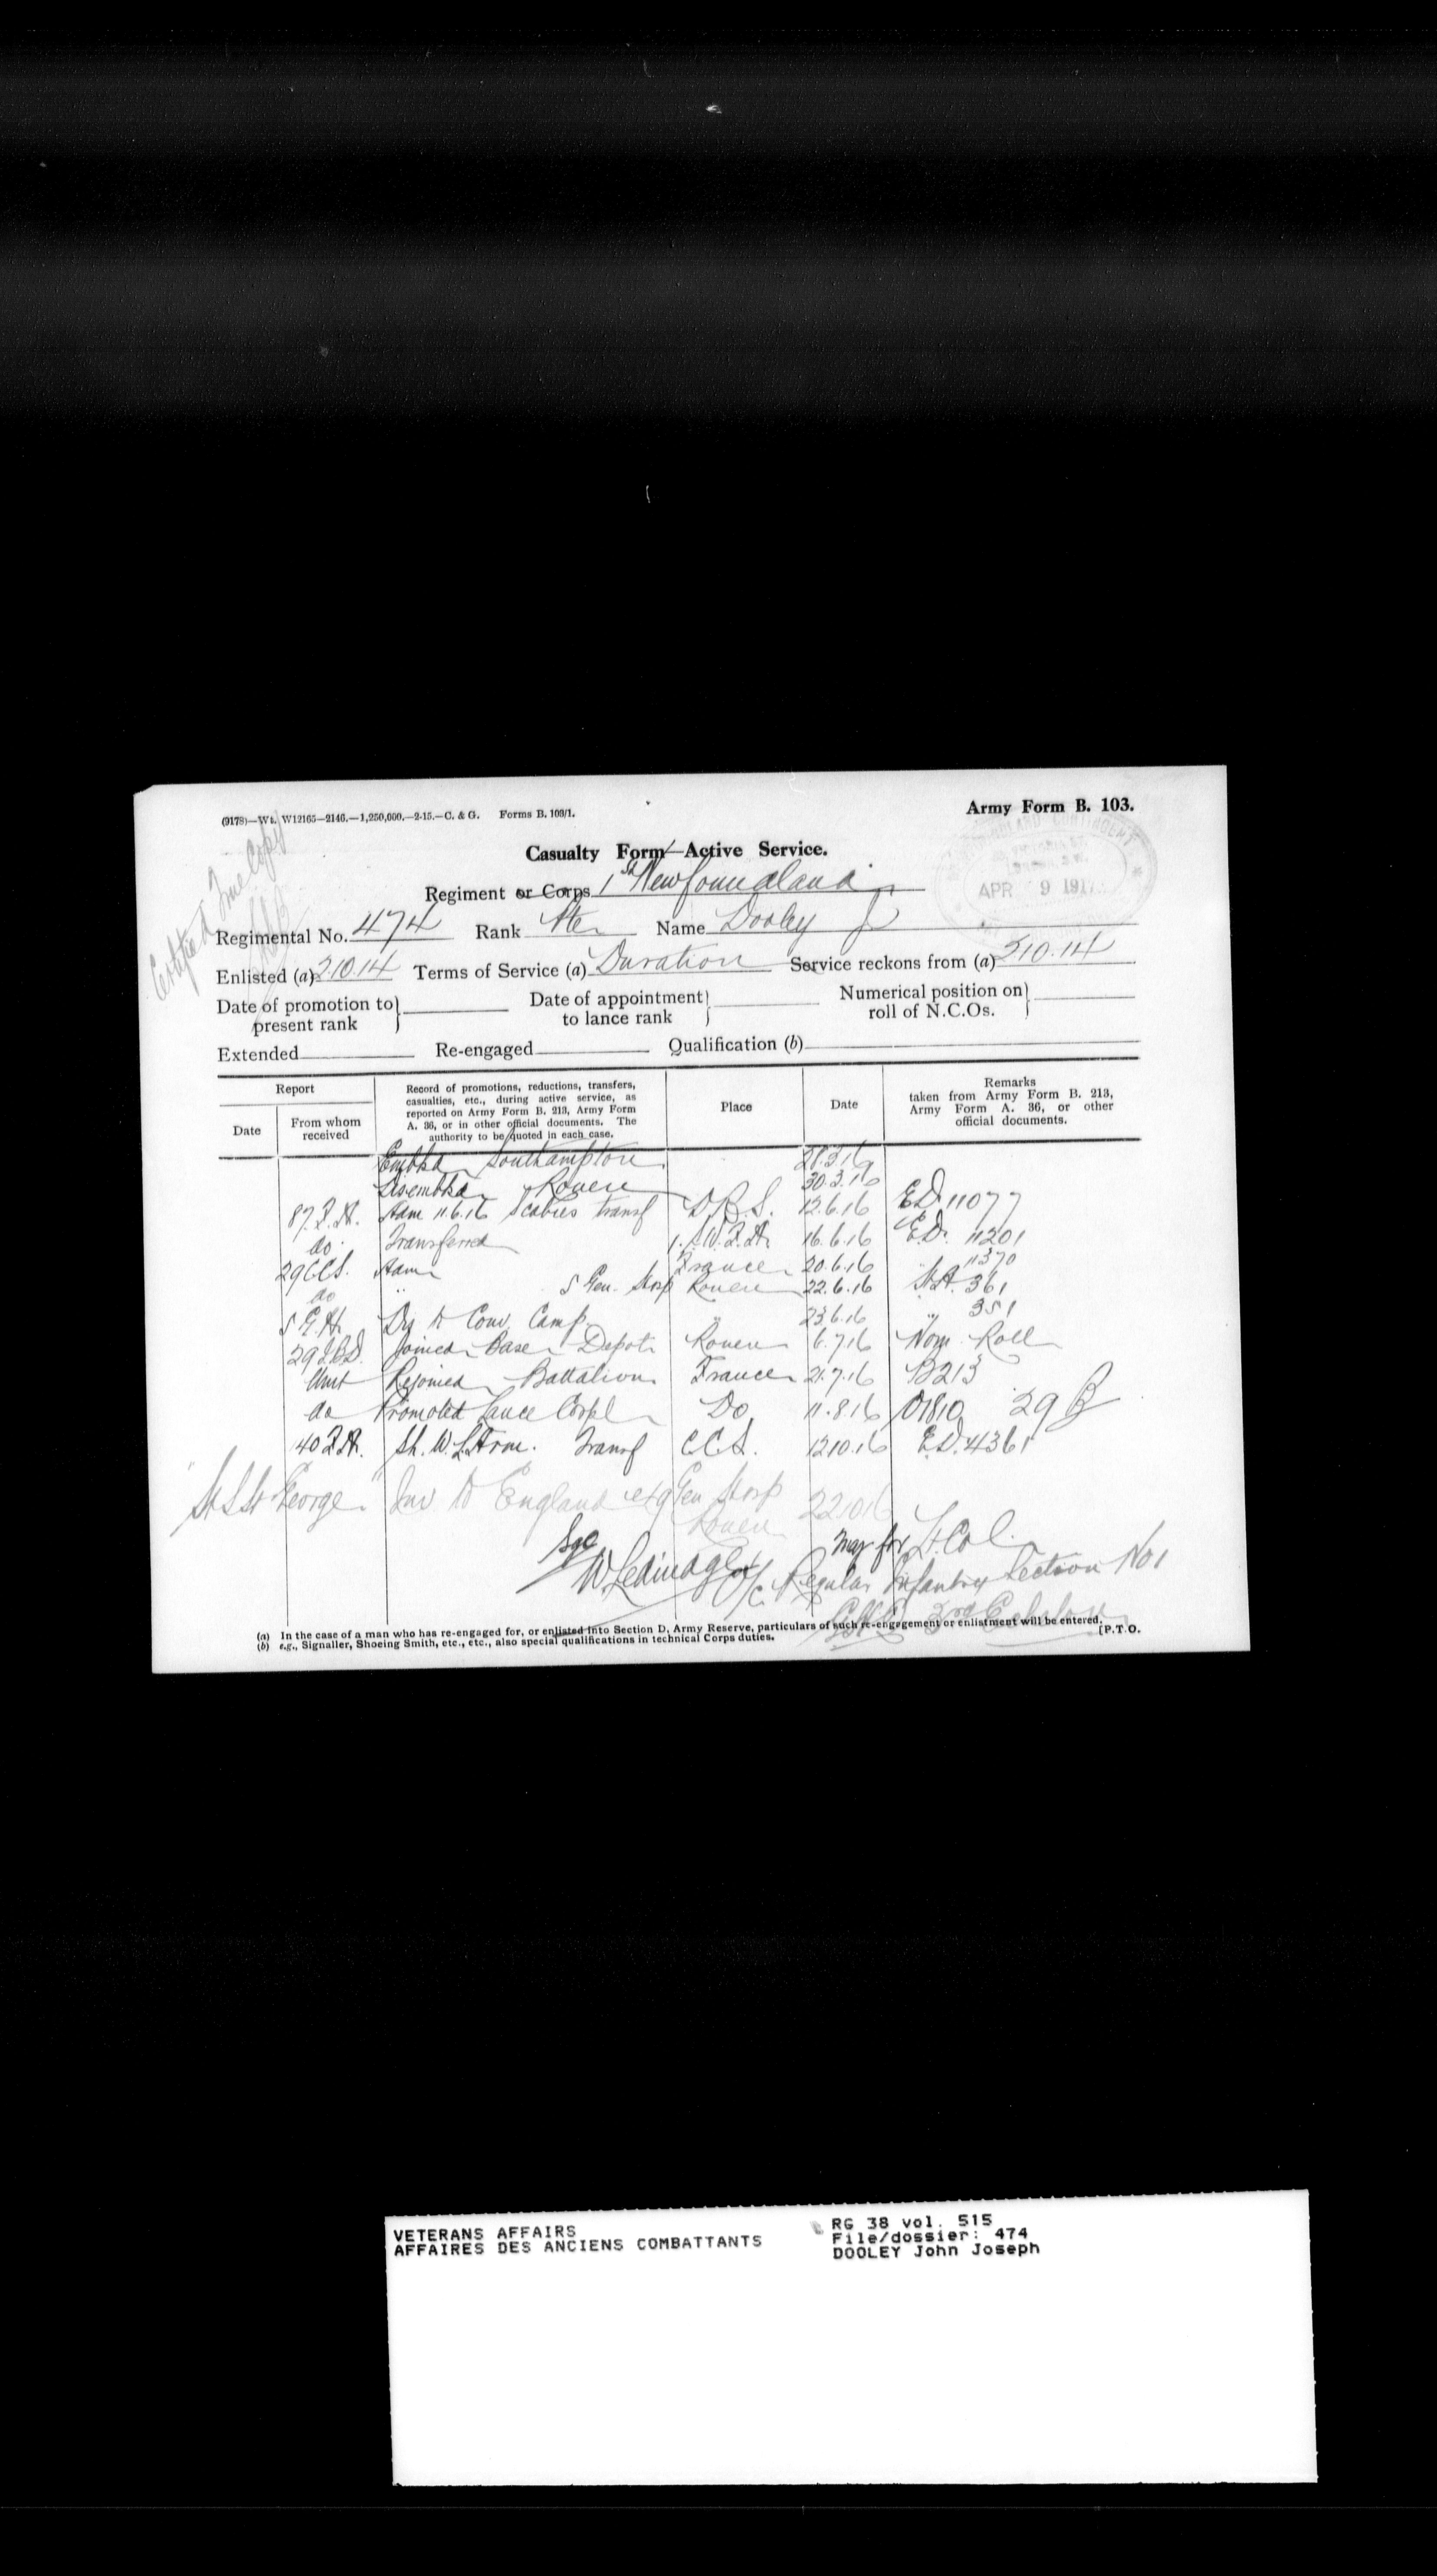 (9178)—Wt. W12165—2146.—1,250,000.—2-15.—C. & G. Forms B. 103/1.
Army Form B. 103.
Certified True Copy
Casualty Form—Active Service.
APR 9 1917
Regiment or Corps 1st Newfoundland
Regimental No. 474 Rank Pte Name Dooley J
Enlisted (a) 2.10.14 Terms of Service (a) Duration Service reckons from (a) 2.10.14
Date of promotion to present rank Date of appointment to lance rank Numerical position on roll of N.C.Os.
Extended Re-engaged Qualification (b)
Report
Date
From whom received
Record of promotions, reductions, transfers, casualties, etc., during active service, as reported on Army Form B. 213, Army Form A. 36, or in other official documents. The authority to be quoted in each case.
Place
Date
Remarks taken from Army Form B. 213, Army Form A. 36, or other official documents.
Embkd Southampton 28.3.16
Disembkd Rouen 30.3.16
87.F.A. Adm 11.6.16 Scabies transf D.R.S. 12.6.16 E.D. 11077
do. Transferred 1. S.W.F.A. 16.6.16 E.D. 11201
29 CCS. Adm France 20.6.16 11370
do " 5 Gen. Hosp Rouen 22.6.16 361
5 G.H. Dis to Conv. Camp. " 23.6.16 " 351
29 I.B.D. Joined Base Depot Rouen 6.7.16 Nom. Roll
Unit Rejoined Battalion France 21.7.16 B213
do Promoted Lance Corpl Do 11.8.16 O1810 29 B
140 F.A. Sh. W. L. Arm. Transf C.C.S. 12.10.16 E.D. 4361
St George Inv to England Gen Hosp
Rouen 22.10.16
Sgd
Maj for Lt. Col.
O/c Regular Infantry Section No 1
G.H.Q. 3rd Echelon
(a) In the case of a man who has re-engaged for, or enlisted into Section D, Army Reserve, particulars of such re-engagement or enlistment will be entered.
(b) e.g., Signaller, Shoeing Smith, etc., etc., also special qualifications in technical Corps duties. [P.T.O.
VETERANS AFFAIRS
AFFAIRES DES ANCIENS COMBATTANTS
RG 38 vol. 515
File/dossier: 474
DOOLEY John Joseph